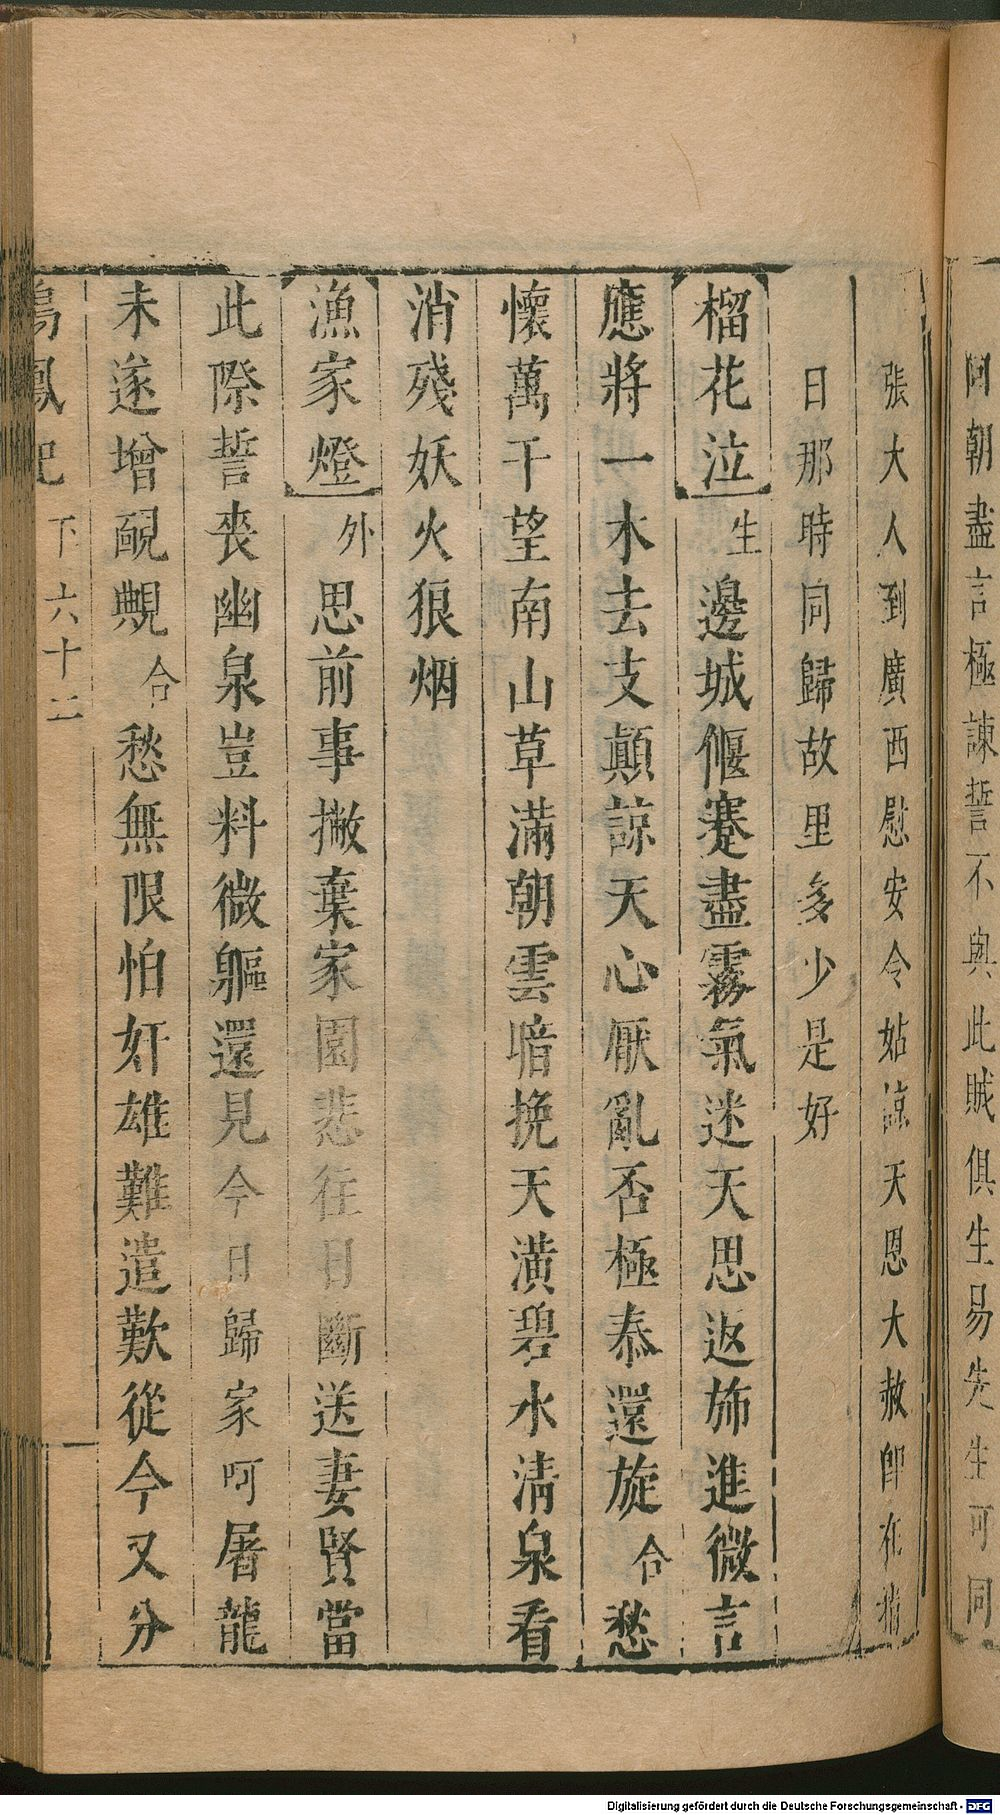 同朝盡言極諫誓不與此賊俱生易先生可同
張大人到廣西慰安令姑諒天恩大赦卽在指
日那時同歸故里多少是好
榴花泣 生 邊城偃蹇盡霧氣迷天思返斾進微言
應將一木去支顛諒天心厭亂否極泰還旋 合 愁
懷萬千望南山草滿朝雲暗挽天潢碧水清泉看
消殘妖火狼烟
漁家燈 外 思前事撇棄家園悲往日斷送妻賢當
此際誓丧幽泉豈料微軀還見今日歸家呵屠龍
未遂增靦覥 合 愁無限怕奸雄難遣歎從今又分
鳴鳳記 下 六十二
Digitalisierung gefördert durch die Deutsche Forschungsgemeinschaft - DFG